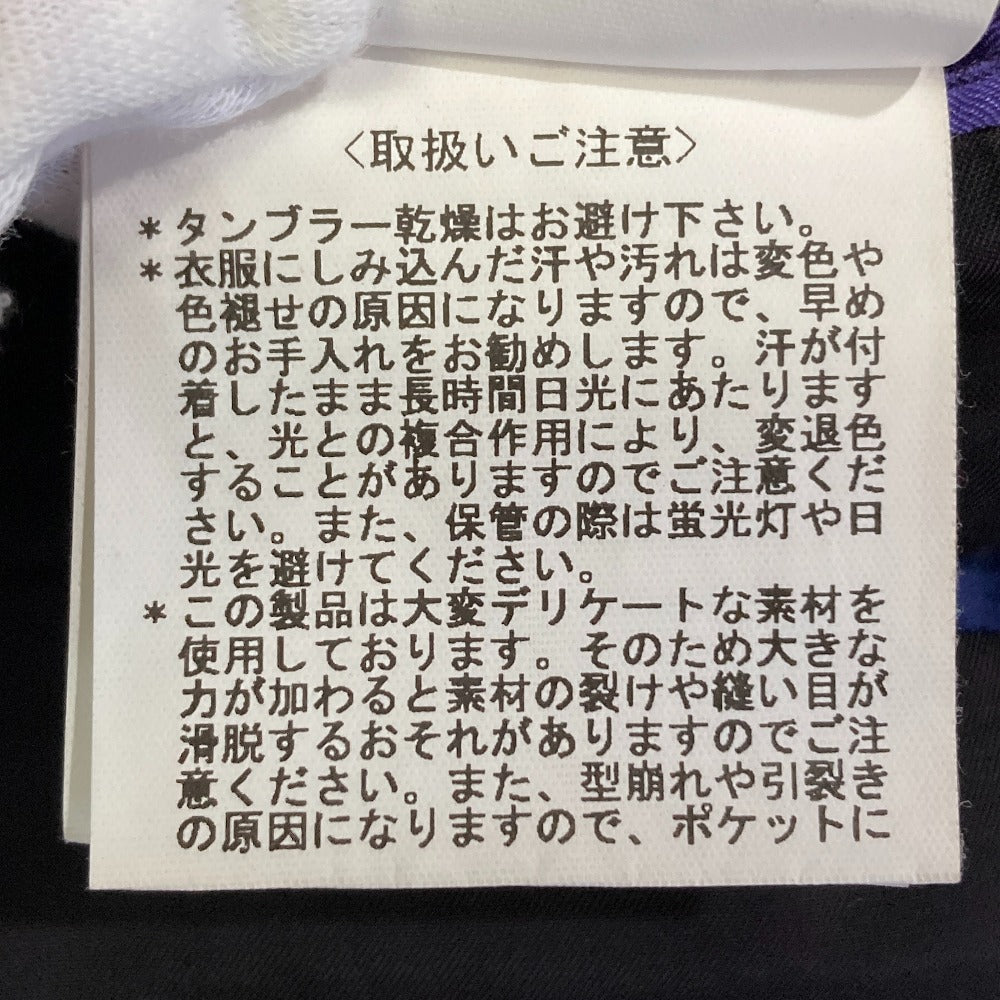 〈取扱いご注意〉
＊タンブラー乾燥はお避け下さい。
＊衣服にしみ込んだ汗や汚れは変色や
色褪せの原因になりますので、早め
のお手入れをお勧めします。汗が付
着したまま長時間日光にあたります
と、光との複合作用により、変退色
することがありますのでご注意くだ
さい。また、保管の際は蛍光灯や日
光を避けてください。
＊この製品は大変デリケートな素材を
使用しております。そのため大きな
力が加わると素材の裂けや縫い目が
滑脱するおそれがありますのでご注
意ください。また、型崩れや引裂き
の原因になりますので、ポケットに